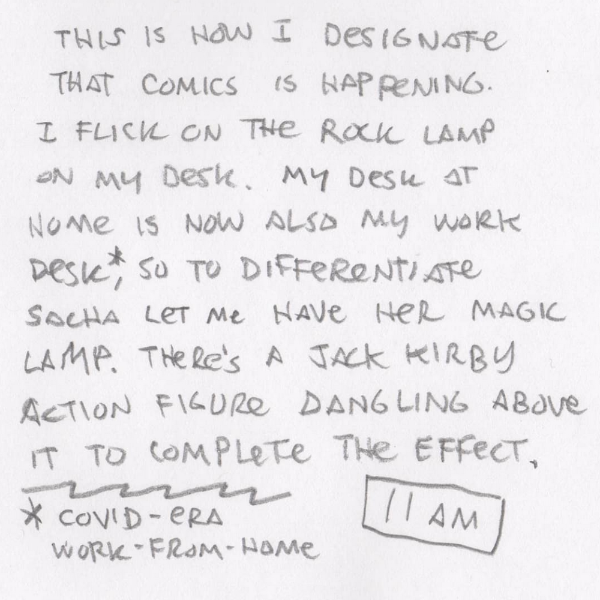 THIS IS HOW I DESIGNATE
THAT COMICS IS HAPPENING.
I FLICK ON THE ROCK LAMP
ON MY DESK. MY DESK AT
HOME IS NOW ALSO MY WORK
DESK*, SO TO DIFFERENTIATE
SACHA LET ME HAVE HER MAGIC
LAMP. THERE'S A JACK KIRBY
ACTION FIGURE DANGLING ABOVE
IT TO COMPLETE THE EFFECT.
* COVID-ERA
WORK-FROM-HOME
11 AM